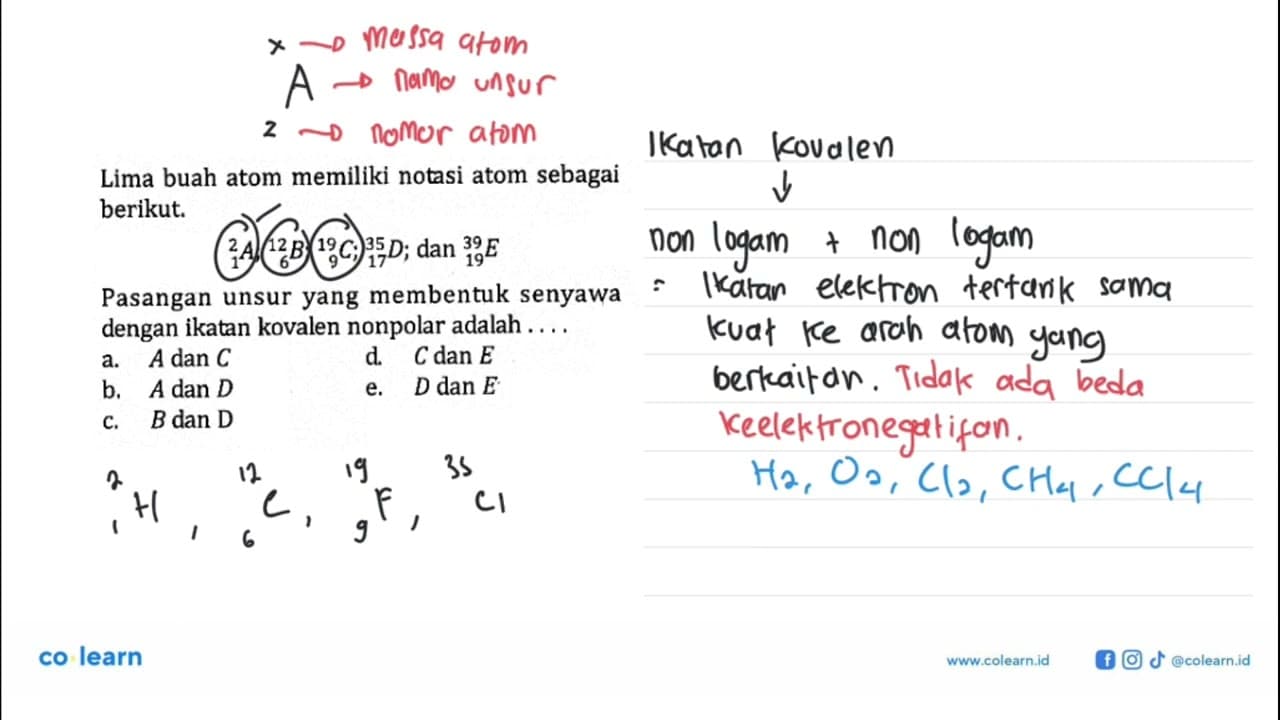 x → massa atom
A → nama unsur
z → nomor atom
Lima buah atom memiliki notasi atom sebagai
berikut.
²₁A; ¹²₆B; ¹⁹₉C; ³⁵₁₇D; dan ³⁹₁₉E
Pasangan unsur yang membentuk senyawa
dengan ikatan kovalen nonpolar adalah . . . .
a. A dan C
b. A dan D
c. B dan D
d. C dan E
e. D dan E
²₁H, ¹²₆C, ¹⁹₉F, ³⁵Cl
Ikatan kovalen
↓
non logam + non logam
= Ikatan elektron tertarik sama
kuat ke arah atom yang
berkaitan. Tidak ada beda
keelektronegatifan.
H₂, O₂, Cl₂, CH₄, CCl₄
co learn
www.colearn.id
@colearn.id